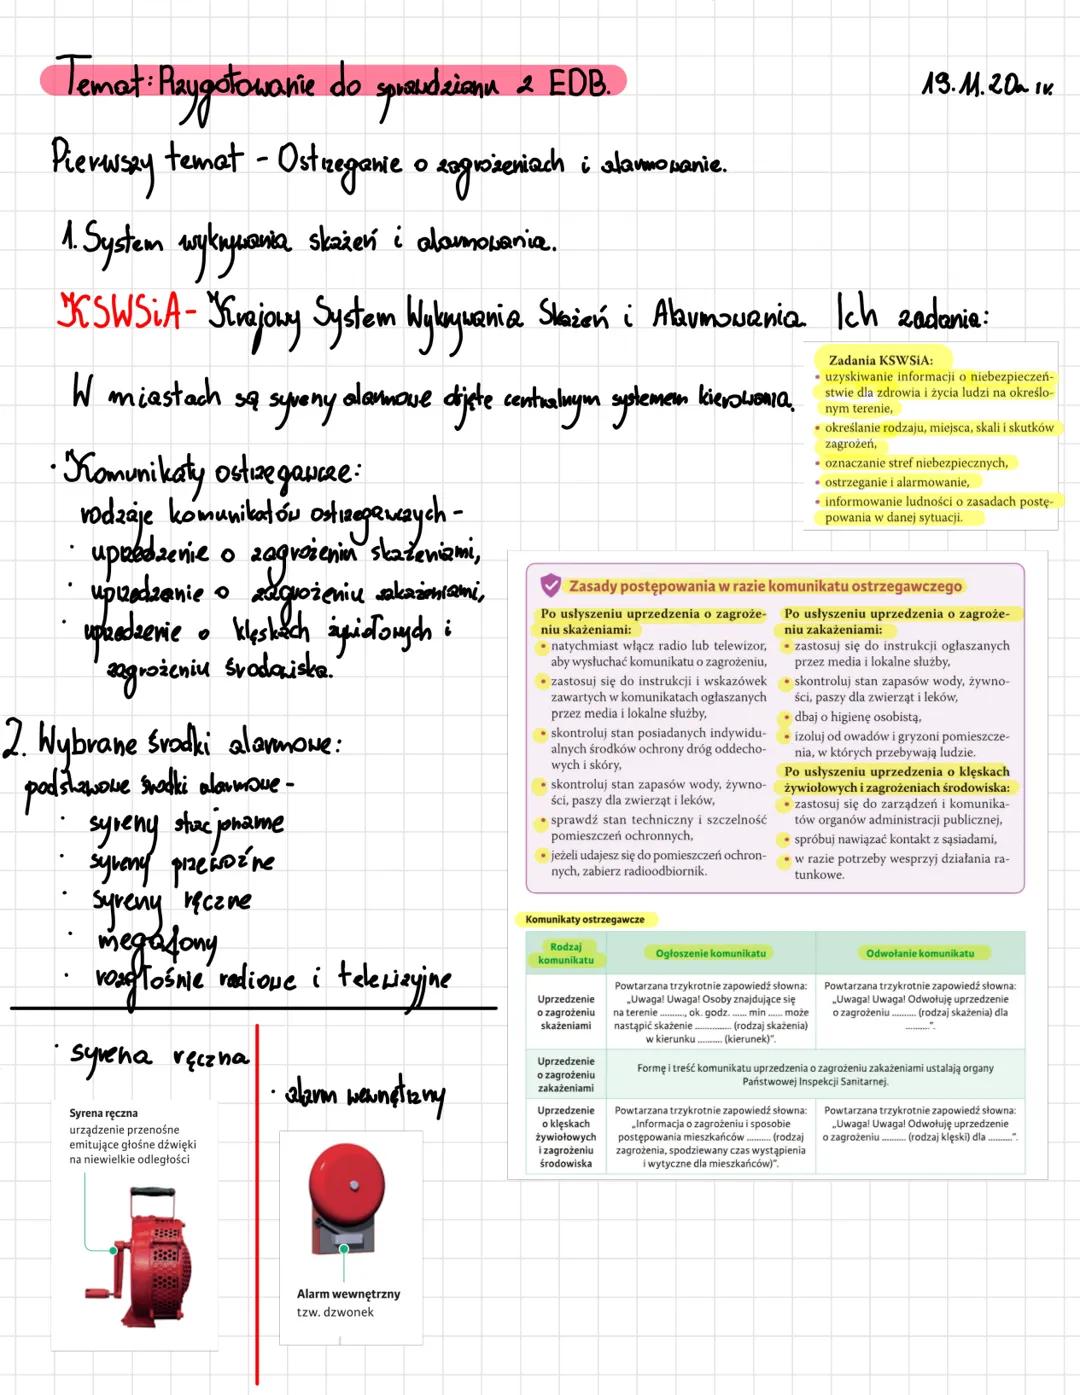 Temat: Przygotowanie do sprawdzianu z EDB.
19.11.20
Pierwszy temat - Ostrzeganie o zagrożeniach i alarmowanie.
1. System wykrywania skażeń i alarmowania.
KSWSiA- Krajowy System Wykrywania Skażeń i Alarmowania. Ich zadania:
Zadania KSWSiA:
• uzyskiwanie informacji o niebezpieczeń-
stwie dla zdrowia i życia ludzi na określo-
nym terenie,
• określanie rodzaju, miejsca, skali i skutków
zagrożeń,
• oznaczanie stref niebezpiecznych,
• ostrzeganie i alarmowanie,
• informowanie ludności o zasadach postę-
powania w danej sytuacji.
W miastach są syreny alarmowe objęte centralnym systemem kierowania.
· Komunikaty ostrzegawcze:
rodzaje komunikatów ostrzegawczych -
· uprzedzenie o zagrożeniu skażeniami,
· uprzedzenie o zagrożeniu zakażeniami,
· uprzedzenie o klęskach żywiołowych i
zagrożeniu środowiska.
2. Wybrane środki alarmowe:
podstawowe środki alarmowe -
· syreny stacjonarne
· syreny przewoźne
· syreny ręczne
· megafony
· rozgłośnie radiowe i telewizyjne
Zasady postępowania w razie komunikatu ostrzegawczego
Po usłyszeniu uprzedzenia o zagroże-
niu skażeniami:
• natychmiast włącz radio lub telewizor,
aby wysłuchać komunikatu o zagrożeniu,
• zastosuj się do instrukcji i wskazówek
zawartych w komunikatach ogłaszanych
przez media i lokalne służby,
• skontroluj stan posiadanych indywidu-
alnych środków ochrony dróg oddecho-
wych i skóry,
• skontroluj stan zapasów wody, żywno-
ści, paszy dla zwierząt i leków,
• sprawdź stan techniczny i szczelność
pomieszczeń ochronnych,
• jeżeli udajesz się do pomieszczeń ochron-
nych, zabierz radioodbiornik.
Po usłyszeniu uprzedzenia o zagroże-
niu zakażeniami:
• zastosuj się do instrukcji ogłaszanych
przez media i lokalne służby,
• skontroluj stan zapasów wody, żywno-
ści, paszy dla zwierząt i leków,
• dbaj o higienę osobistą,
• izoluj od owadów i gryzoni pomieszcze-
nia, w których przebywają ludzie.
Po usłyszeniu uprzedzenia o klęskach
żywiołowych i zagrożeniach środowiska:
• zastosuj się do zarządzeń i komunika-
tów organów administracji publicznej,
• spróbuj nawiązać kontakt z sąsiadami,
• w razie potrzeby wesprzyj działania ra-
tunkowe.
Komunikaty ostrzegawcze
Rodzaj
komunikatu
Ogłoszenie komunikatu
Odwołanie komunikatu
Uprzedzenie
o zagrożeniu
skażeniami
Powtarzana trzykrotnie zapowiedź słowna:
„Uwaga! Uwaga! Osoby znajdujące się
na terenie .........., ok. godz. ...... min ...... może
nastąpić skażenie .............. (rodzaj skażenia)
w kierunku .......... (kierunek)".
Powtarzana trzykrotnie zapowiedź słowna:
„Uwaga! Uwaga! Odwołuję uprzedzenie
o zagrożeniu .......... (rodzaj skażenia) dla
..........".
Uprzedzenie
o zagrożeniu
zakażeniami
Formę i treść komunikatu uprzedzenia o zagrożeniu zakażeniami ustalają organy
Państwowej Inspekcji Sanitarnej.
Uprzedzenie
o klęskach
żywiołowych
i zagrożeniu
środowiska
Powtarzana trzykrotnie zapowiedź słowna:
„Informacja o zagrożeniu i sposobie
postępowania mieszkańców .......... (rodzaj
zagrożenia, spodziewany czas wystąpienia
i wytyczne dla mieszkańców)".
Powtarzana trzykrotnie zapowiedź słowna:
„Uwaga! Uwaga! Odwołuję uprzedzenie
o zagrożeniu .......... (rodzaj klęski) dla ..........".
· syrena ręczna
Syrena ręczna
urządzenie przenośne
emitujące głośne dźwięki
na niewielkie odległości
· alarm wewnętrzny
Alarm wewnętrzny
tzw. dzwonek